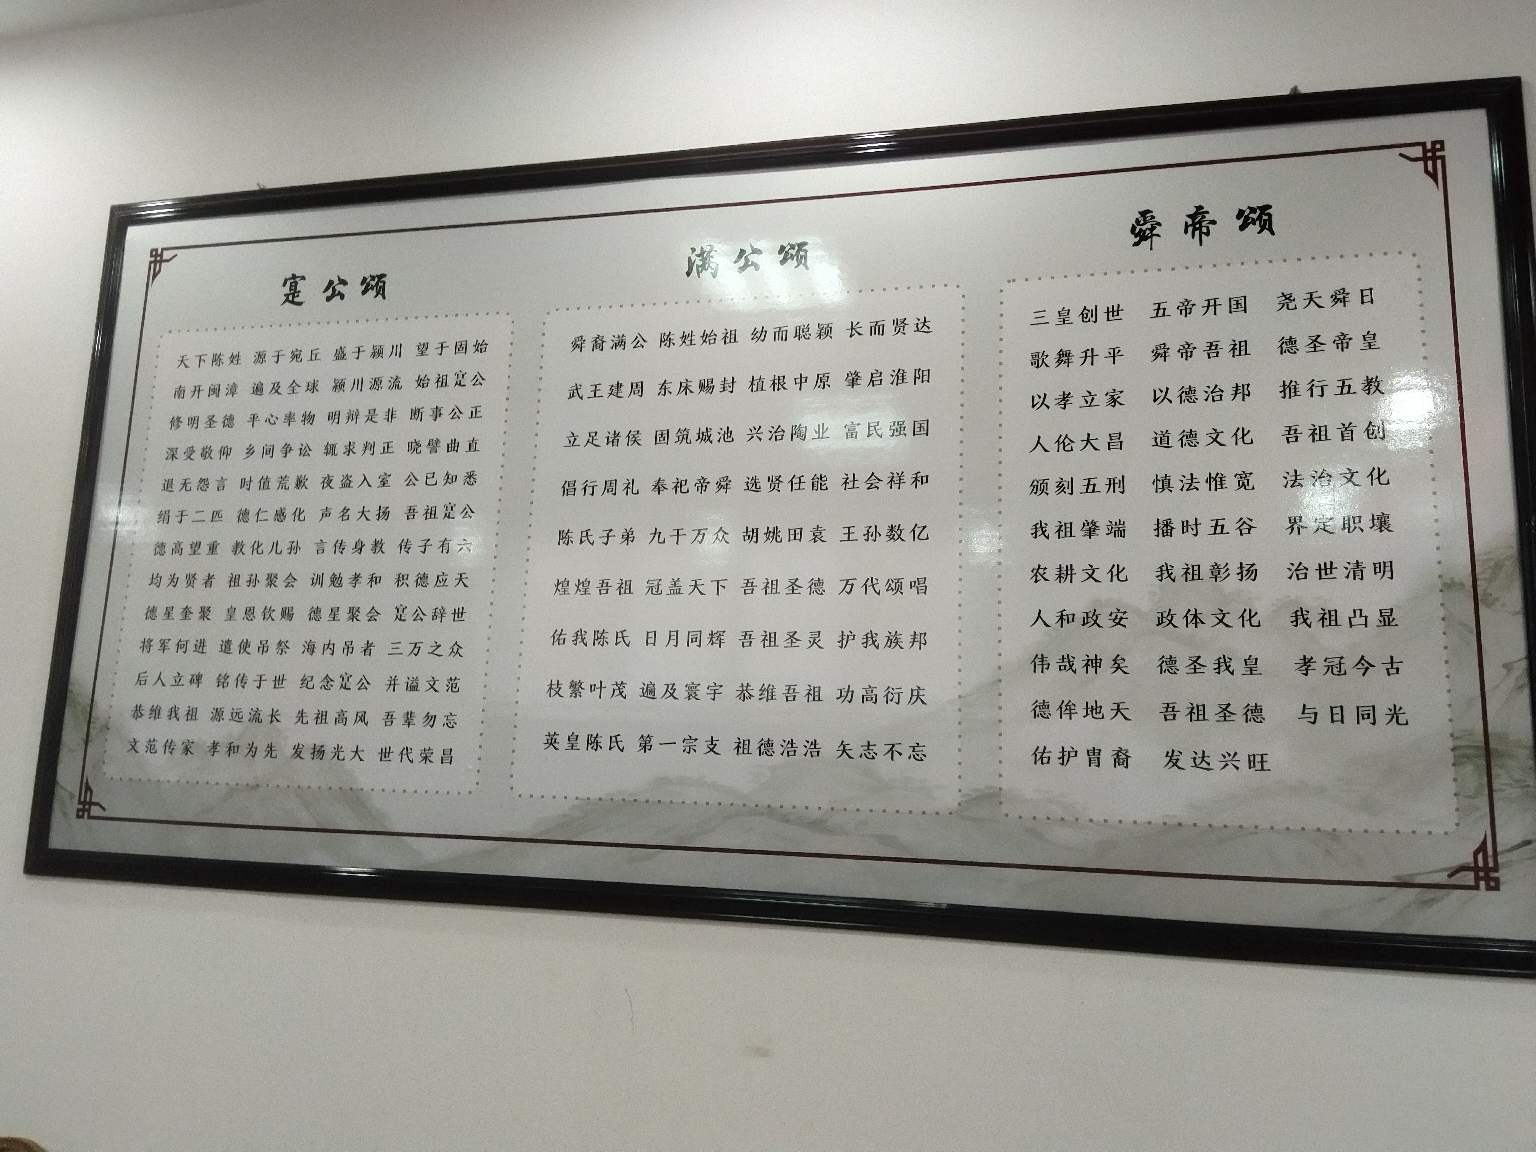 寔公颂
天下陈姓 源于宛丘 盛于颍川 望于固始
南开闽漳 遍及全球 颍川源流 始祖寔公
修明圣德 平心率物 明辩是非 断事公正
深受敬仰 乡间争讼 辄求判正 晓譬曲直
退无怨言 时值荒歉 夜盗入室 公已知悉
绢于二匹 德仁感化 声名大扬 吾祖寔公
德高望重 教化儿孙 言传身教 传子有六
均为贤者 祖孙聚会 训勉孝和 积德应天
德星奎聚 皇恩钦赐 德星聚会 寔公辞世
将军何进 遣使吊祭 海内吊者 三万之众
后人立碑 铭传于世 纪念寔公 并谥文范
恭维我祖 源远流长 先祖高风 吾辈勿忘
文范传家 孝和为先 发扬光大 世代荣昌
满公颂
舜裔满公 陈姓始祖 幼而聪颖 长而贤达
武王建周 东床赐封 植根中原 肇启淮阳
立足诸侯 固筑城池 兴治陶业 富民强国
倡行周礼 奉祀帝舜 选贤任能 社会祥和
陈氏子弟 九千万众 胡姚田袁 王孙数亿
煌煌吾祖 冠盖天下 吾祖圣德 万代颂唱
佑我陈氏 日月同辉 吾祖圣灵 护我族邦
枝繁叶茂 遍及寰宇 恭维吾祖 功高衍庆
英皇陈氏 第一宗支 祖德浩浩 矢志不忘
舜帝颂
三皇创世 五帝开国 尧天舜日
歌舞升平 舜帝吾祖 德圣帝皇
以孝立家 以德治邦 推行五教
人伦大昌 道德文化 吾祖首创
颁刻五刑 慎法惟宽 法治文化
我祖肇端 播时五谷 界定职壤
农耕文化 我祖彰扬 治世清明
人和政安 政体文化 我祖凸显
伟哉神矣 德圣我皇 孝冠今古
德侔地天 吾祖圣德 与日同光
佑护胄裔 发达兴旺